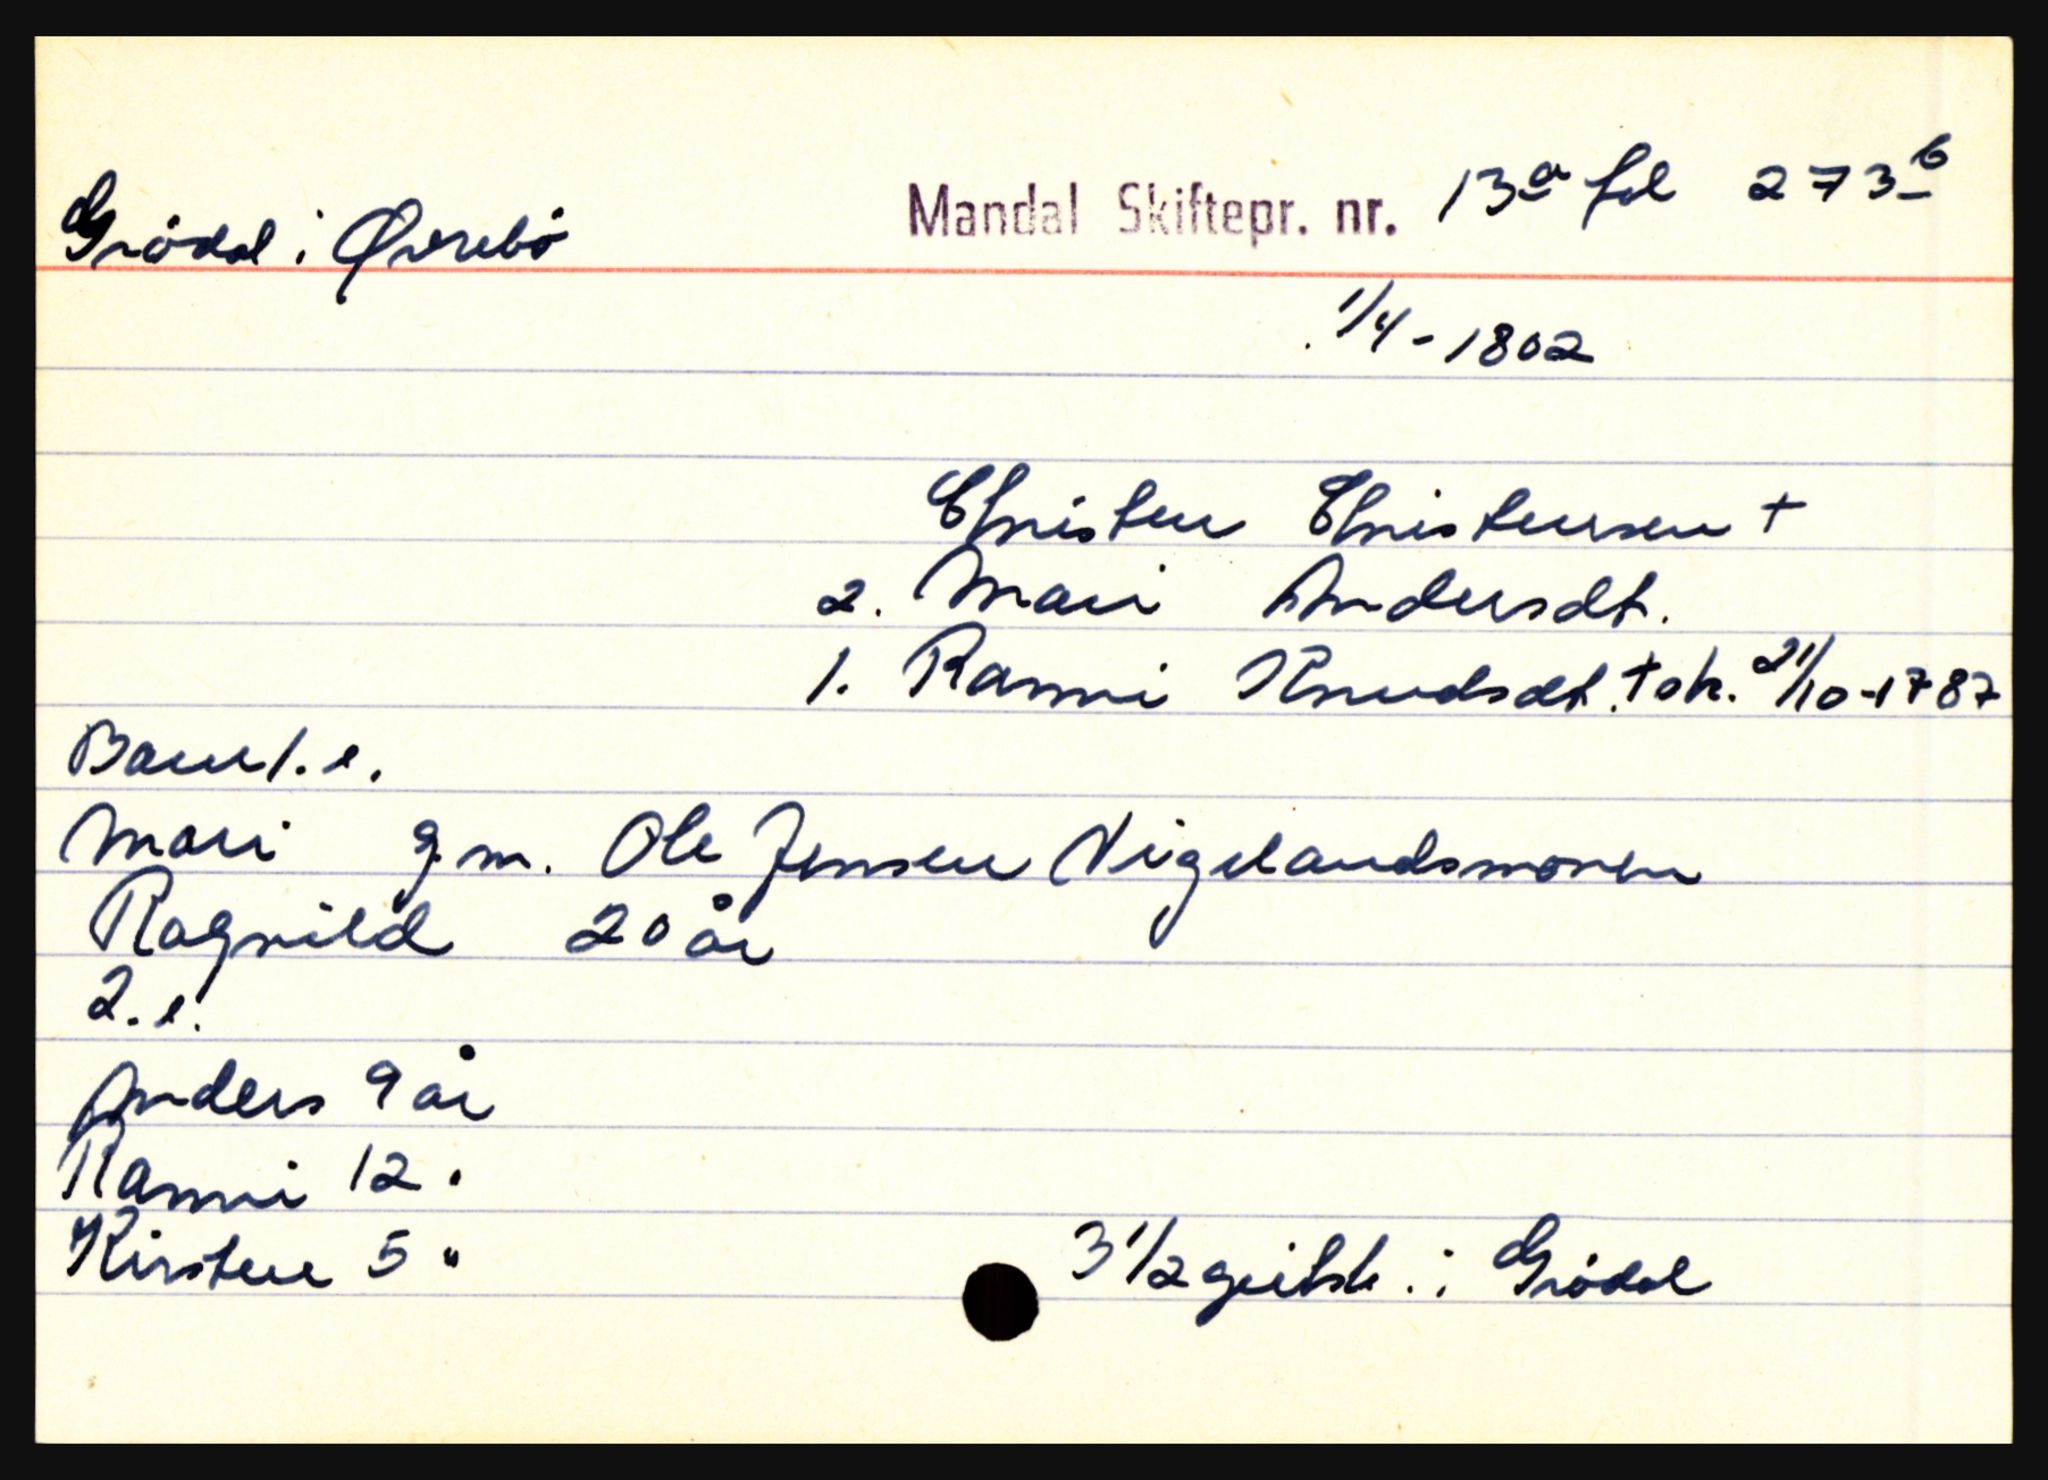 Grödal i Øvrebö Mandal Skiftepr. nr. 13a fol 273b
1/4 - 1802
Christen Christensen +
2. Mari Andersdt.
1. Ranni Knudsdt. + sk. 21/10-1787
Barn 1. e.
Mari g.m. Ole Jensen Vigelandsmoren
Ragnild 20 år
2. e.
Anders 9 år
Ranni 12 "
Kirsten 5 "
3 1/2 geitsk. i Grödal